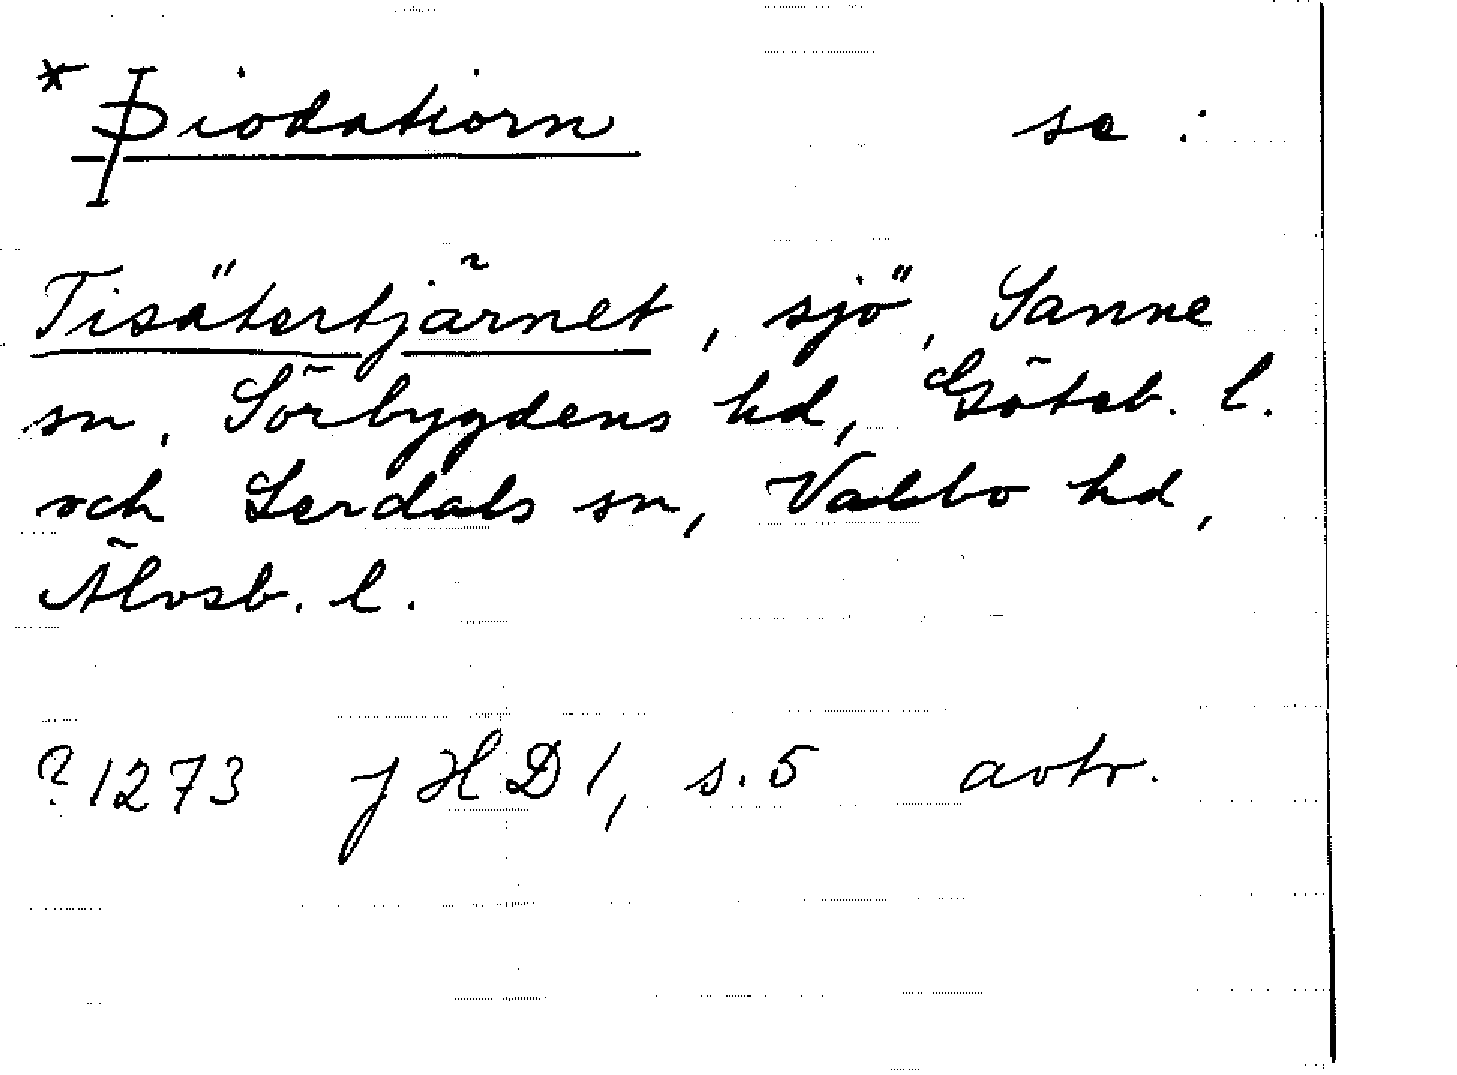 * Þiodatiorn se :
Tisätertjärnet, sjö, Sanne
sn, Sörbygdens hd, Göteb. l.
och Lerdals sn, Valbo hd,
Älvsb. l.
? 1273 JHD 1, s. 5 avtr.